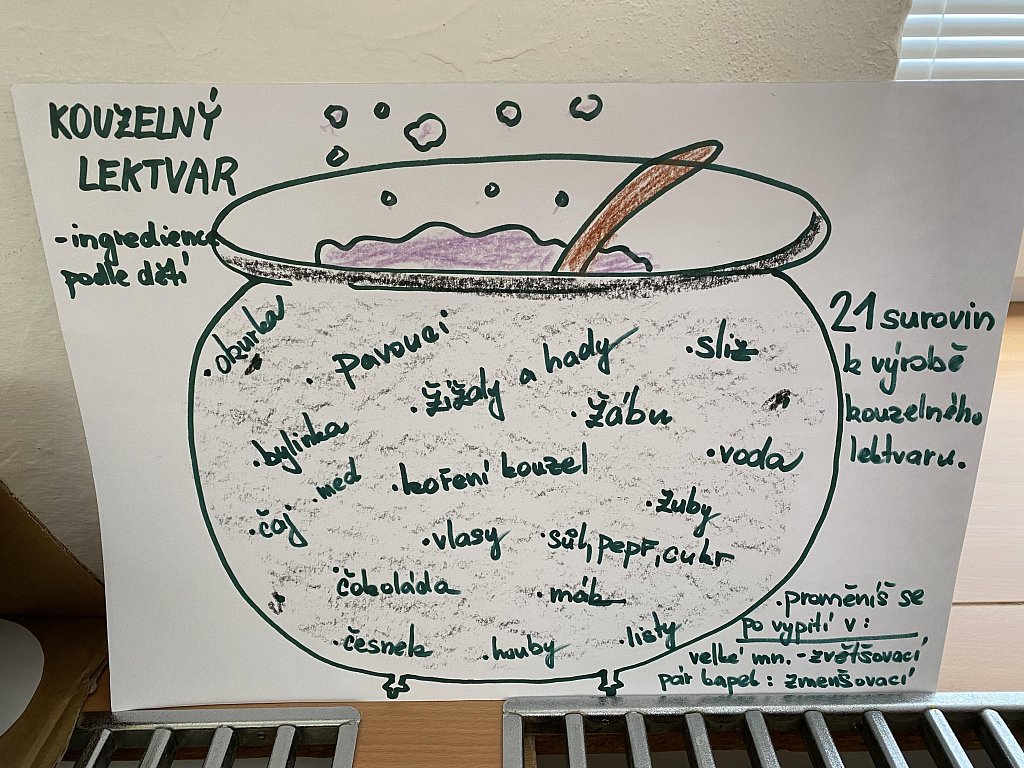 KOUZELNÝ
LEKTVAR
- ingredience
podle dětí
21 surovin
k výrobě
kouzelného
lektvaru.
• okurka
• pavouci
• žížaly a hady
• sliz
• žábu
• bylinka
• med
• koření kouzel
• voda
• čaj
• vlasy
• zuby
• sůl, pepř, cukr
• čokoláda
• mák
• česnek
• houby
• listy
• proměníš se
po vypití v:
velké mn. - zvětšovací
pár kapek : zmenšovací